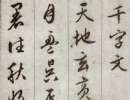 千字文
天地玄黃
月盈昃
暑往秋收